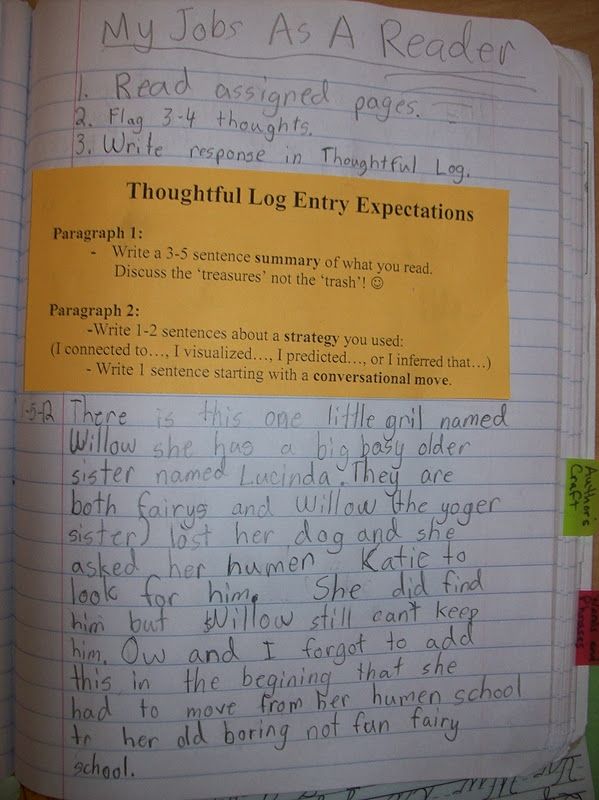 My Jobs As A Reader
1. Read assigned pages.
2. Flag 3-4 thoughts.
3. Write response in Thoughtful Log.
Thoughtful Log Entry Expectations
Paragraph 1:
- Write a 3-5 sentence summary of what you read.
Discuss the 'treasures' not the 'trash'! ☺
Paragraph 2:
-Write 1-2 sentences about a strategy you used:
(I connected to…, I visualized…, I predicted…, or I inferred that…)
- Write 1 sentence starting with a conversational move.
1-5-12 There is this one little gril named
Willow she has a big basy older
sister named Lucinda. They are
both fairys and Willow (the yoger
sister) lost her dog and she
asked her humen Katie to
look for him. She did find
him but Willow still can't keep
him. Ow and I forgot to add
this in the begining that she
had to move from her humen school
to her old boring not fun fairy
school.
Author's
Craft
Words and
Phrases